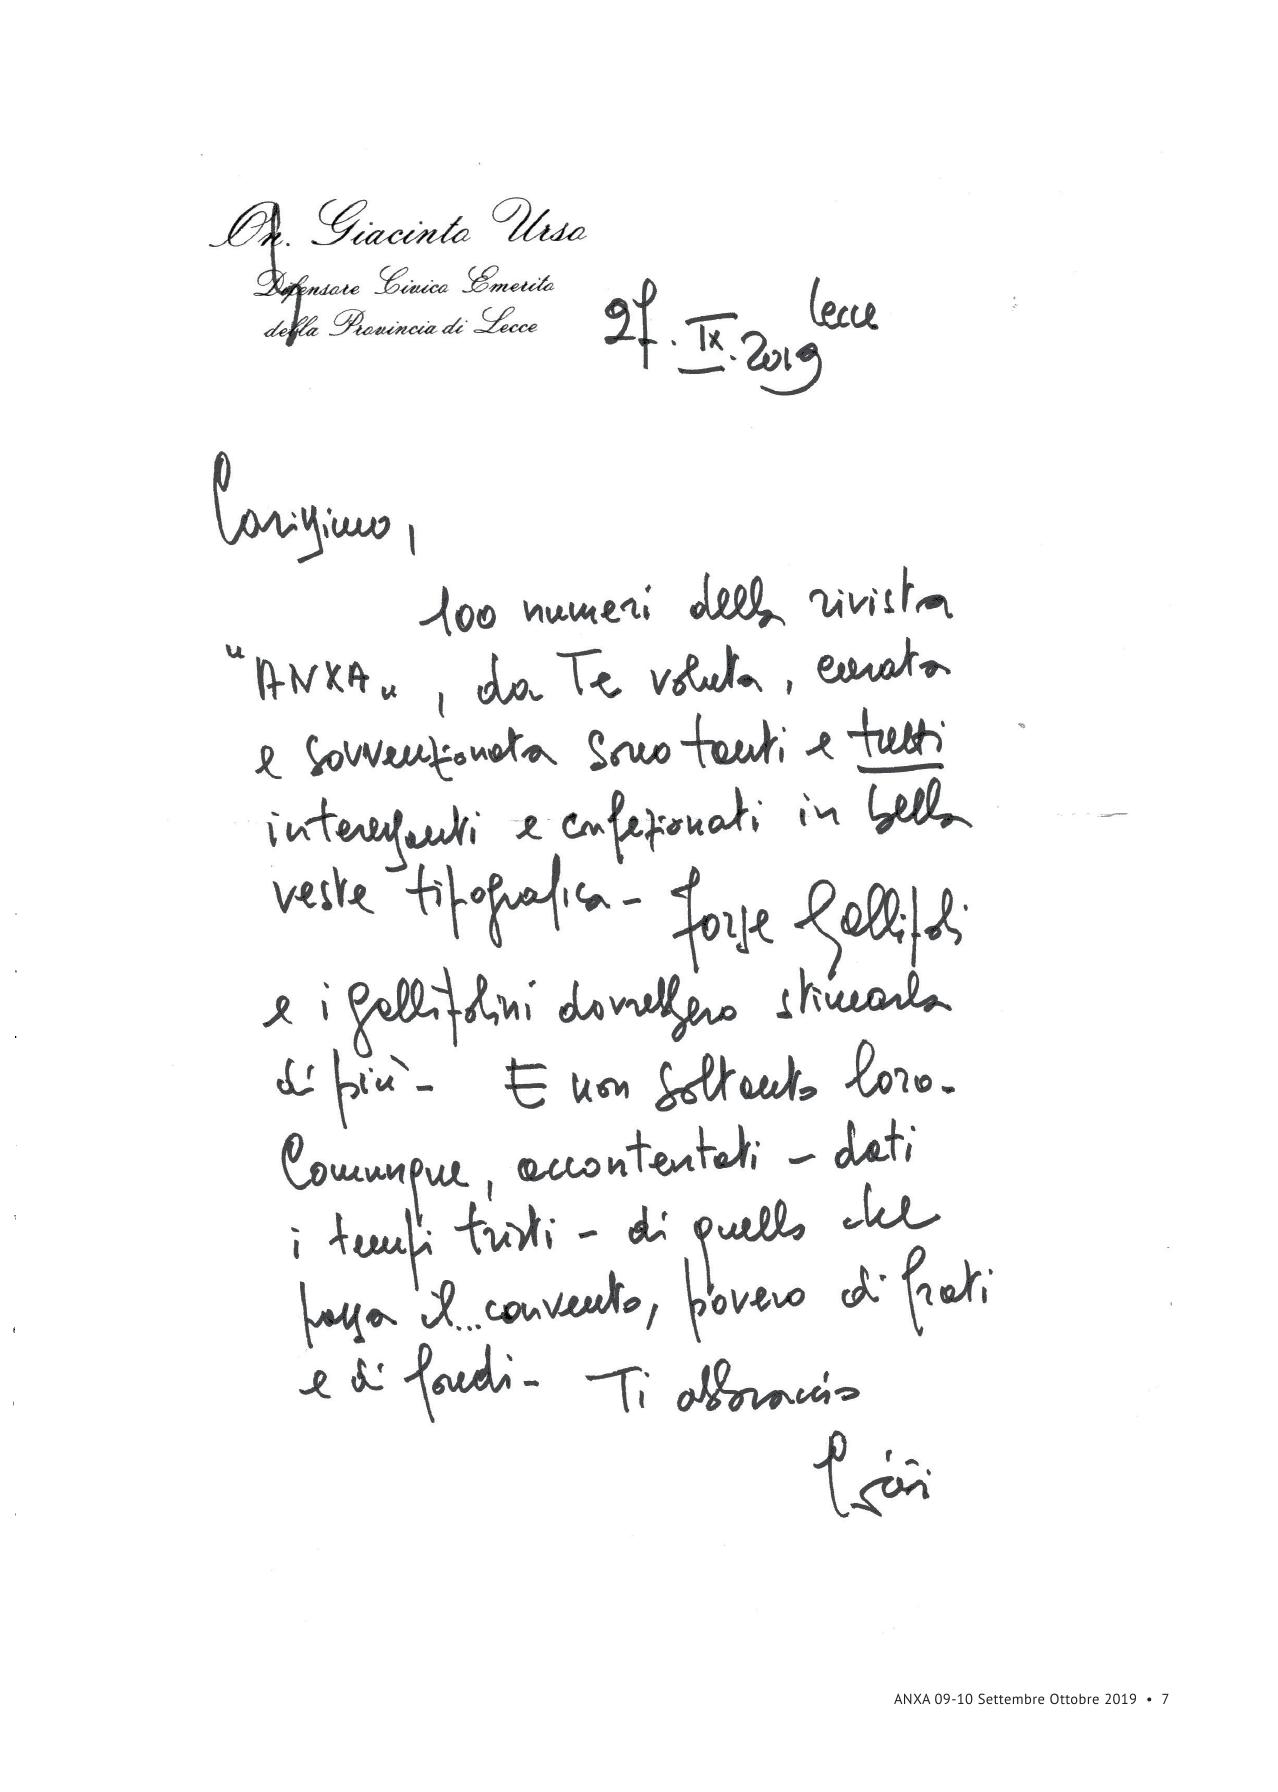 On. Giacinto Urso
Difensore Civico Emerito
della Provincia di Lecce
Lecce
27. IX. 2019
Carissimo,
100 numeri della rivista
"ANXA", da Te voluta, curata
e sovvenzionata sono tanti e tutti
interessanti e confezionati in bella
veste tipografica - Forse Gallipoli
e i gallipolini dovrebbero stimarla
di più - E non soltanto loro.
Comunque, accontentati - dati
i tempi tristi - di quello che
passa il... convento, povero di frati
e di fondi - Ti abbraccio
ANXA 09-10 Settembre Ottobre 2019 • 7